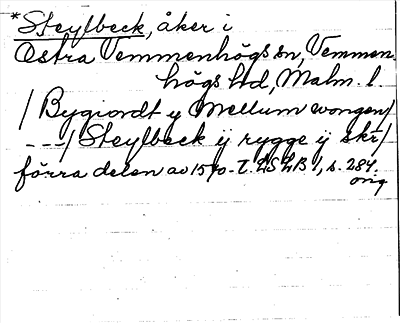 *Steylbeck, åker i
Östra Vemmenhögs sn, Vemmen-
högs hd, Malm. l.
/ Bygiordt y Mellum wongen/
---/ Steylbeck ij rygge ij skr/
förra delen av 1570-t. LSLB 1, s. 284.
orig